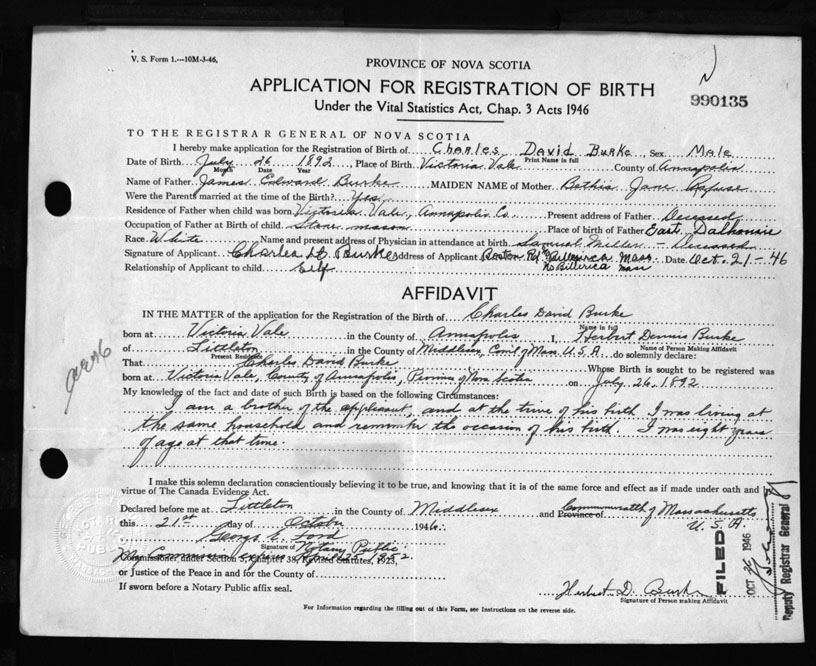 V. S. Form 1.—10M-3-46,
PROVINCE OF NOVA SCOTIA
APPLICATION FOR REGISTRATION OF BIRTH
Under the Vital Statistics Act, Chap. 3 Acts 1946
990135
TO THE REGISTRAR GENERAL OF NOVA SCOTIA
I hereby make application for the Registration of Birth of Charles David Burke, Sex Male
Print Name in full
Date of Birth July 26 1892, Place of Birth Victoria Vale County of Annapolis
Month Date Year
Name of Father James Edward Burke MAIDEN NAME of Mother Bethia Jane Rafuse
Were the Parents married at the time of the Birth? Yes
Residence of Father when child was born Victoria Vale, Annapolis Co. Present address of Father Deceased
Occupation of Father at Birth of child Stone mason Place of birth of Father East Dalhousie
Race White Name and present address of Physician in attendance at birth Samuel Miller - Deceased
Signature of Applicant Charles D. Burke Address of Applicant Boston Rd Billerica Mass Date Oct. 21-46
No Billerica Mass
Relationship of Applicant to child Self
AFFIDAVIT
IN THE MATTER of the application for the Registration of the Birth of Charles David Burke
Name in full
born at Victoria Vale in the County of Annapolis I, Herbert Dennis Burke
Name of Person Making Affidavit
of Littleton in the County of Middlesex, Com. of Mass. U. S. A. do solemnly declare:
Present Residence
That Charles David Burke Whose Birth is sought to be registered was
born at Victoria Vale, County of Annapolis, Province of Nova Scotia on July 26, 1892
My knowledge of the fact and date of such Birth is based on the following Circumstances:
I am a brother of the applicant, and at the time of his birth I was living at
the same household and remember the occasion of his birth. I was eight years
of age at that time.
I make this solemn declaration conscientiously believing it to be true, and knowing that it is of the same force and effect as if made under oath and by
virtue of The Canada Evidence Act.
Declared before me at Littleton in the County of Middlesex and Province of Commonwealth of Massachusetts
this 21st day of October 1946. U. S. A.
George C. Ford
Signature of Notary Public
My Commission expires
Commissioner under Section 5, Chapter 38, Revised Statutes, 1923,
or Justice of the Peace in and for County of
If sworn before a Notary Public affix seal.
Herbert D. Burke
Signature of Person making Affidavit
For Information regarding the filling out of this Form, see Instructions on the reverse side.
FILED
OCT 26 1946
Deputy Registrar General